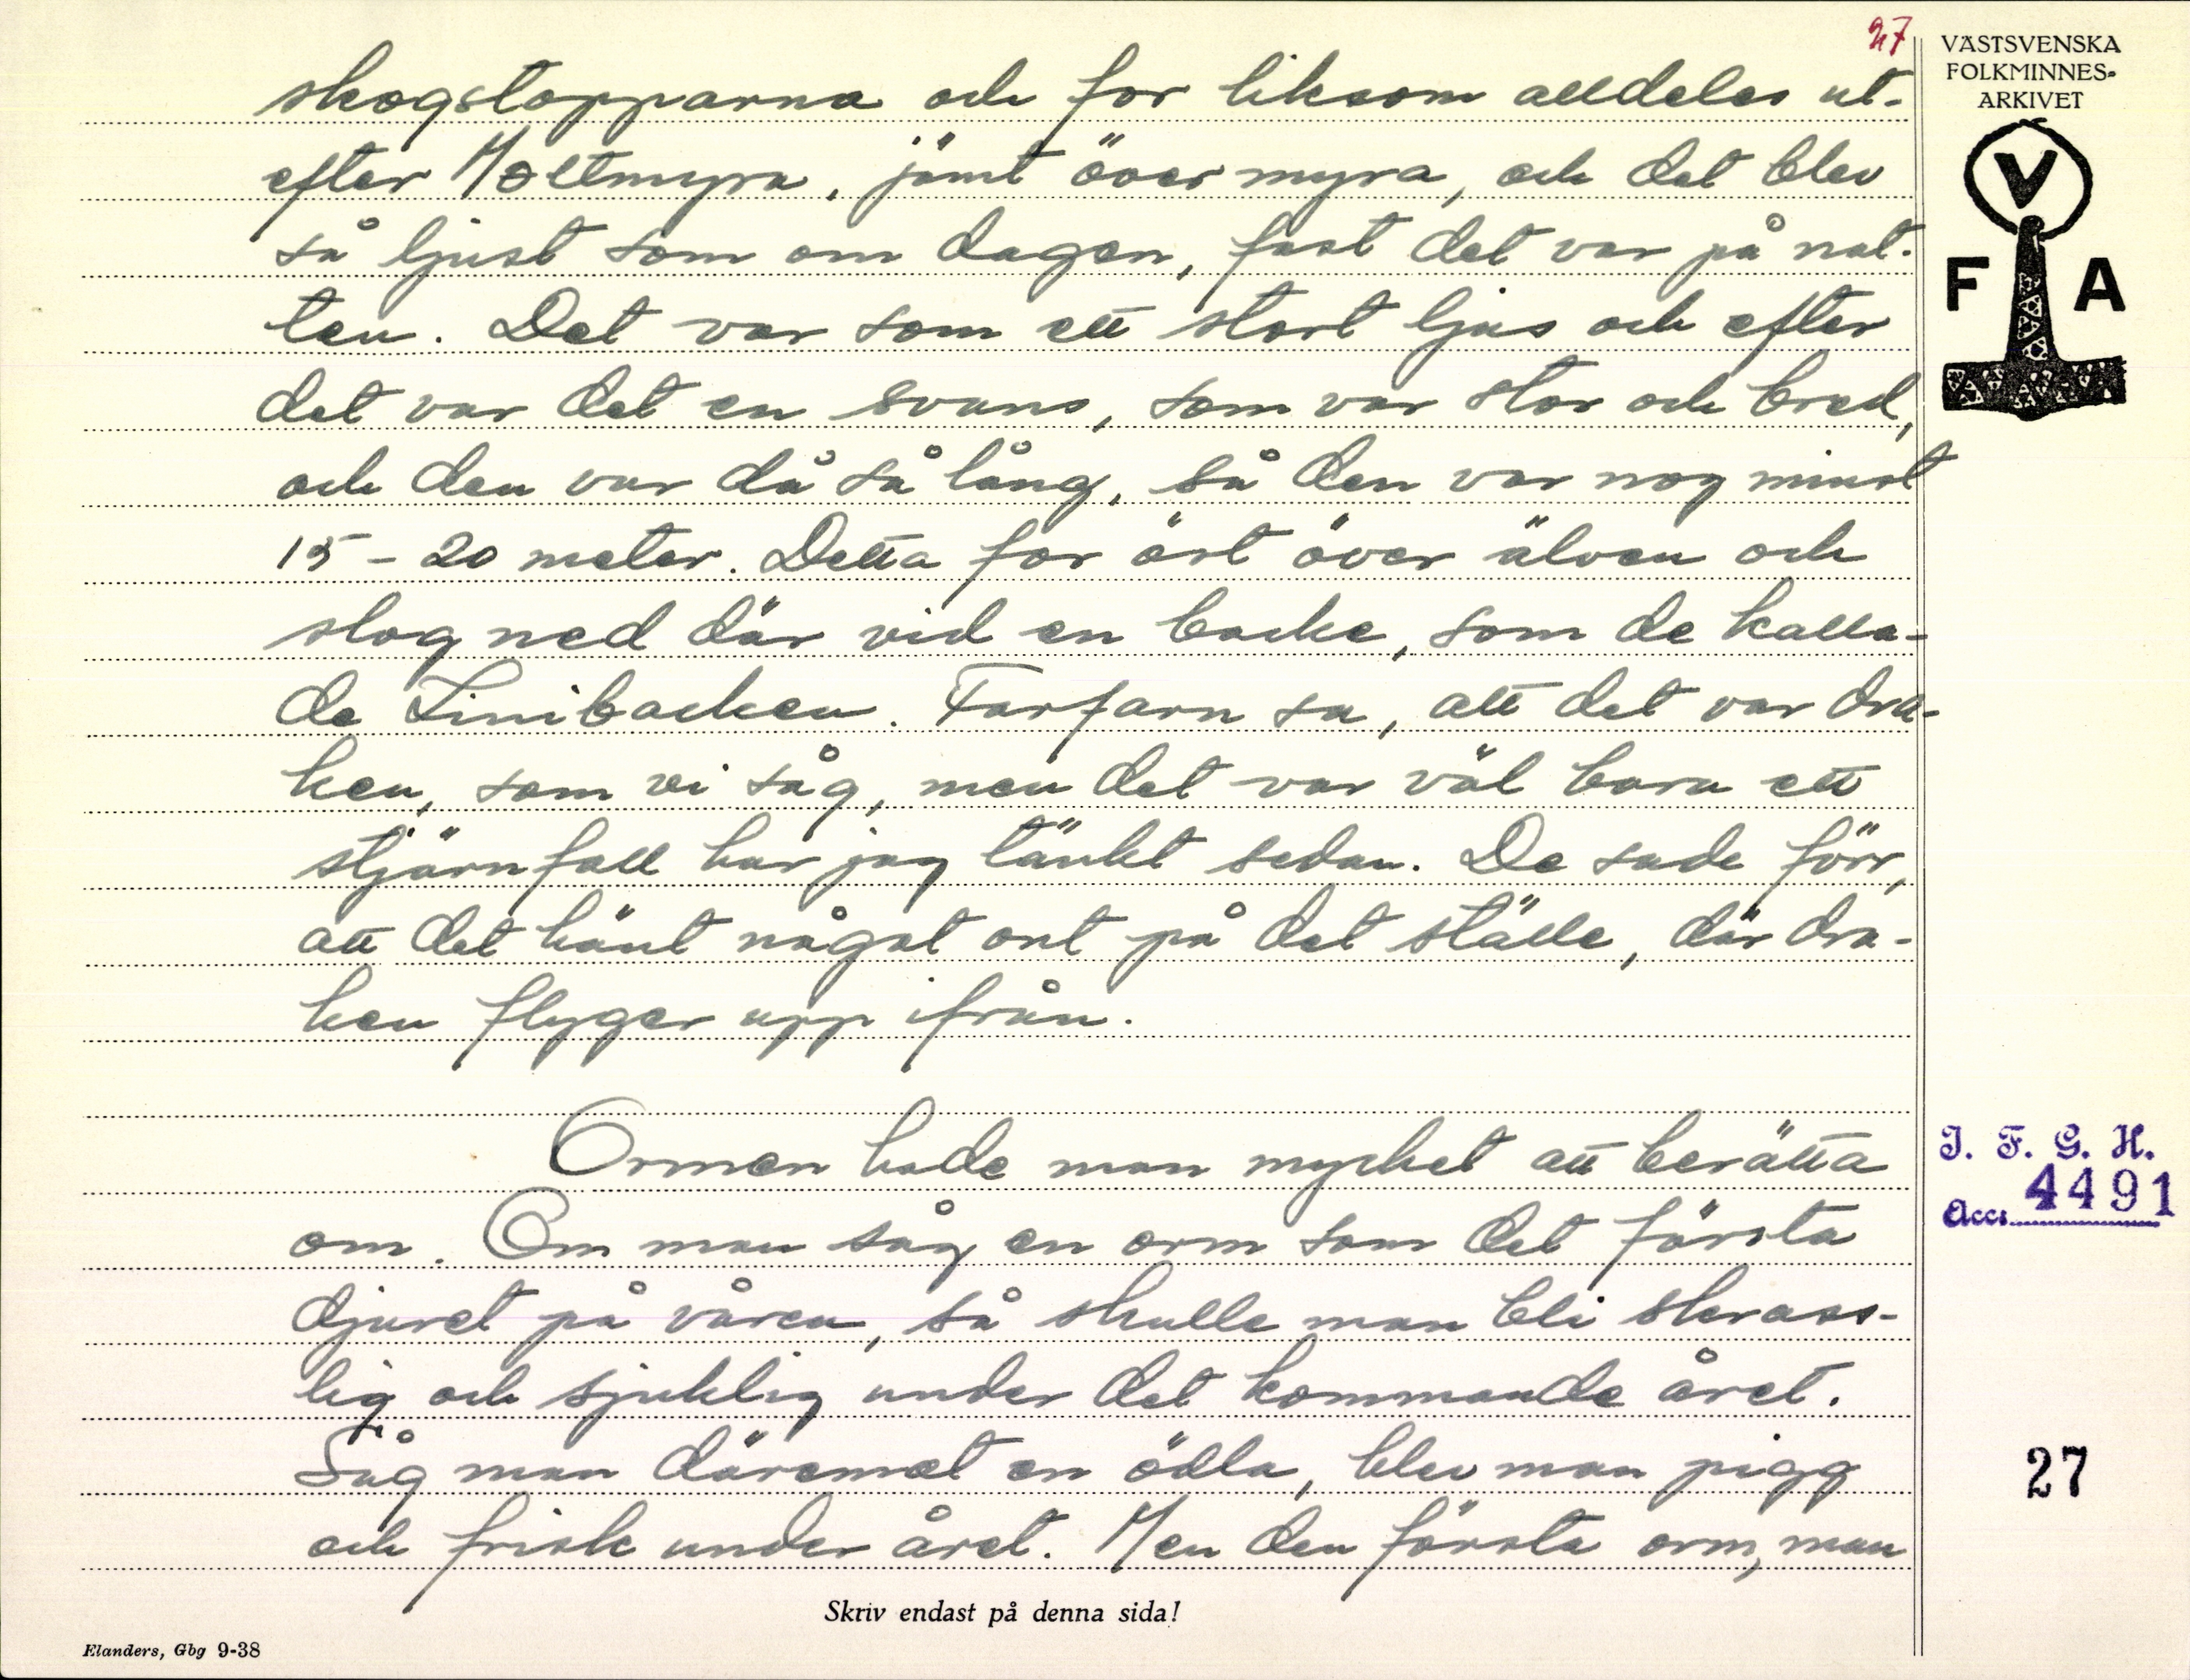 27
skogstopparna och for liksom alldeles ut-
efter Moltmyra, jämt över myra, och det blev
så ljust som om dagen, fast det var på nat-
ten. Det var som ett stort ljus och efter
det var det en svans, som var stor och bred,
och den var då så lång, så den var nog minst
15 - 20 meter. Detta for öst över älven och
slog ned där vid en backe, som de kalla-
de Linibacken. Farfarn sa, att det var dra-
ken, som vi såg, men det var väl bara ett
stjärnfall har jag tänkt sedan. De sade förr,
att det hänt något ont på det ställe, där dra-
ken flyger upp ifrån.
Ormen hade man mycket att berätta
om. Om man såg en orm som det första
djuret på våren, så skulle man bli skrass-
lig och sjuklig under det kommande året.
Såg man däremot en ödla, blev man pigg
och frisk under året. Men den första orm, man
Skriv endast på denna sida!
Elanders, Gbg 9-38
VÄSTSVENSKA
FOLKMINNES-
ARKIVET
V
F A
I. F. G. H.
Acc. 4491
27